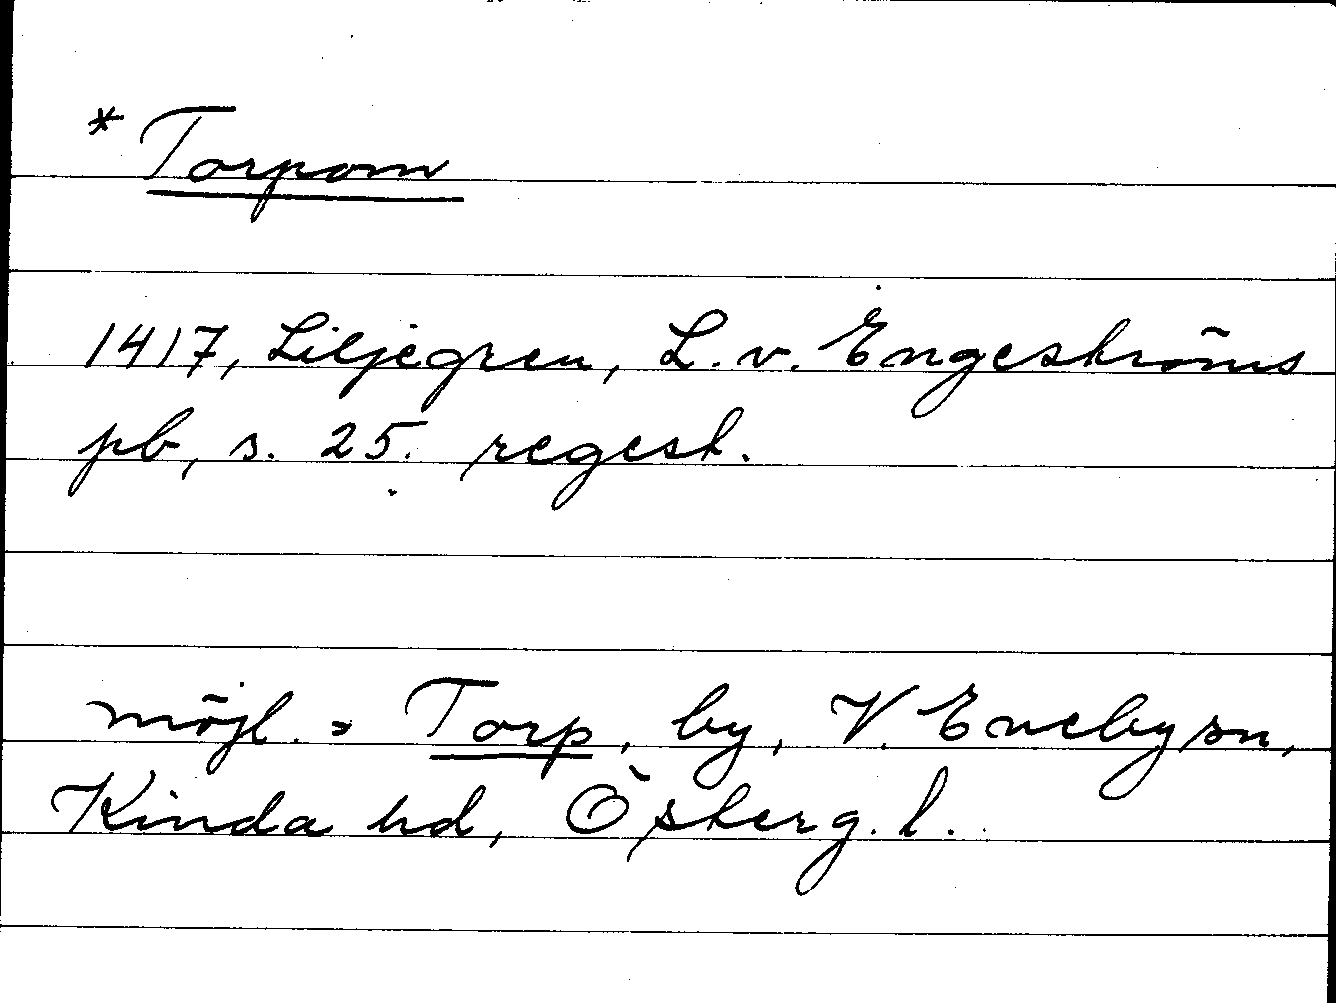 * Torpom
1417, Liljegren, L. v. Engeströms
pb, s. 25. regest.
möjl. = Torp, by, V. Eneby sn,
Kinda hd, Österg. l.